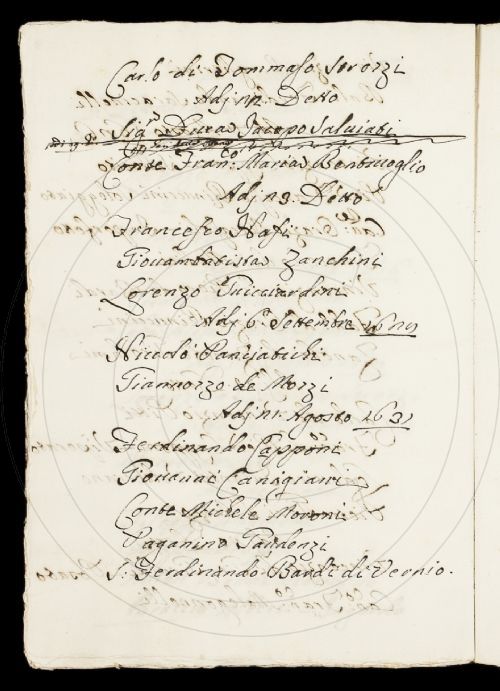 Carlo di Tommaso Strozzi
Adj 12. Detto
Sig.r Duca Jacopo Salviati
Conte Fran.co Maria Bentivoglio
Adj 23. Detto
Francesco Nasi
Giovambatista Zanchini
Lorenzo Guicciardini
Adj 6. Settembre
Niccolò Panciatichi
Giannozzo de Mozzi
Agosto 1631
Ferdinando Capponi
Giovanni Canigiani
Conte Michele Moroni
Paganino Gaudenzi
S. Ferdinando Bardi di Vernio.